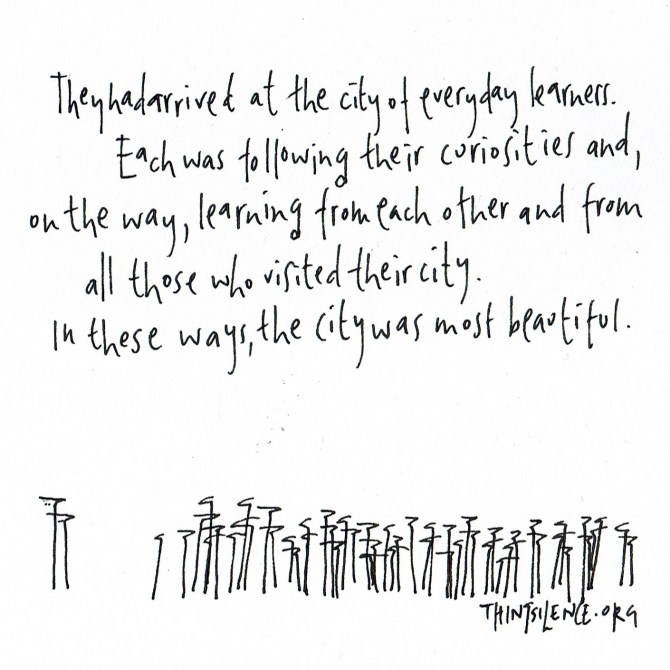 They had arrived at the city of everyday learners.
Each was following their curiosities and,
on the way, learning from each other and from
all those who visited their city.
In these ways, the city was most beautiful.
THINTSILENCE.ORG